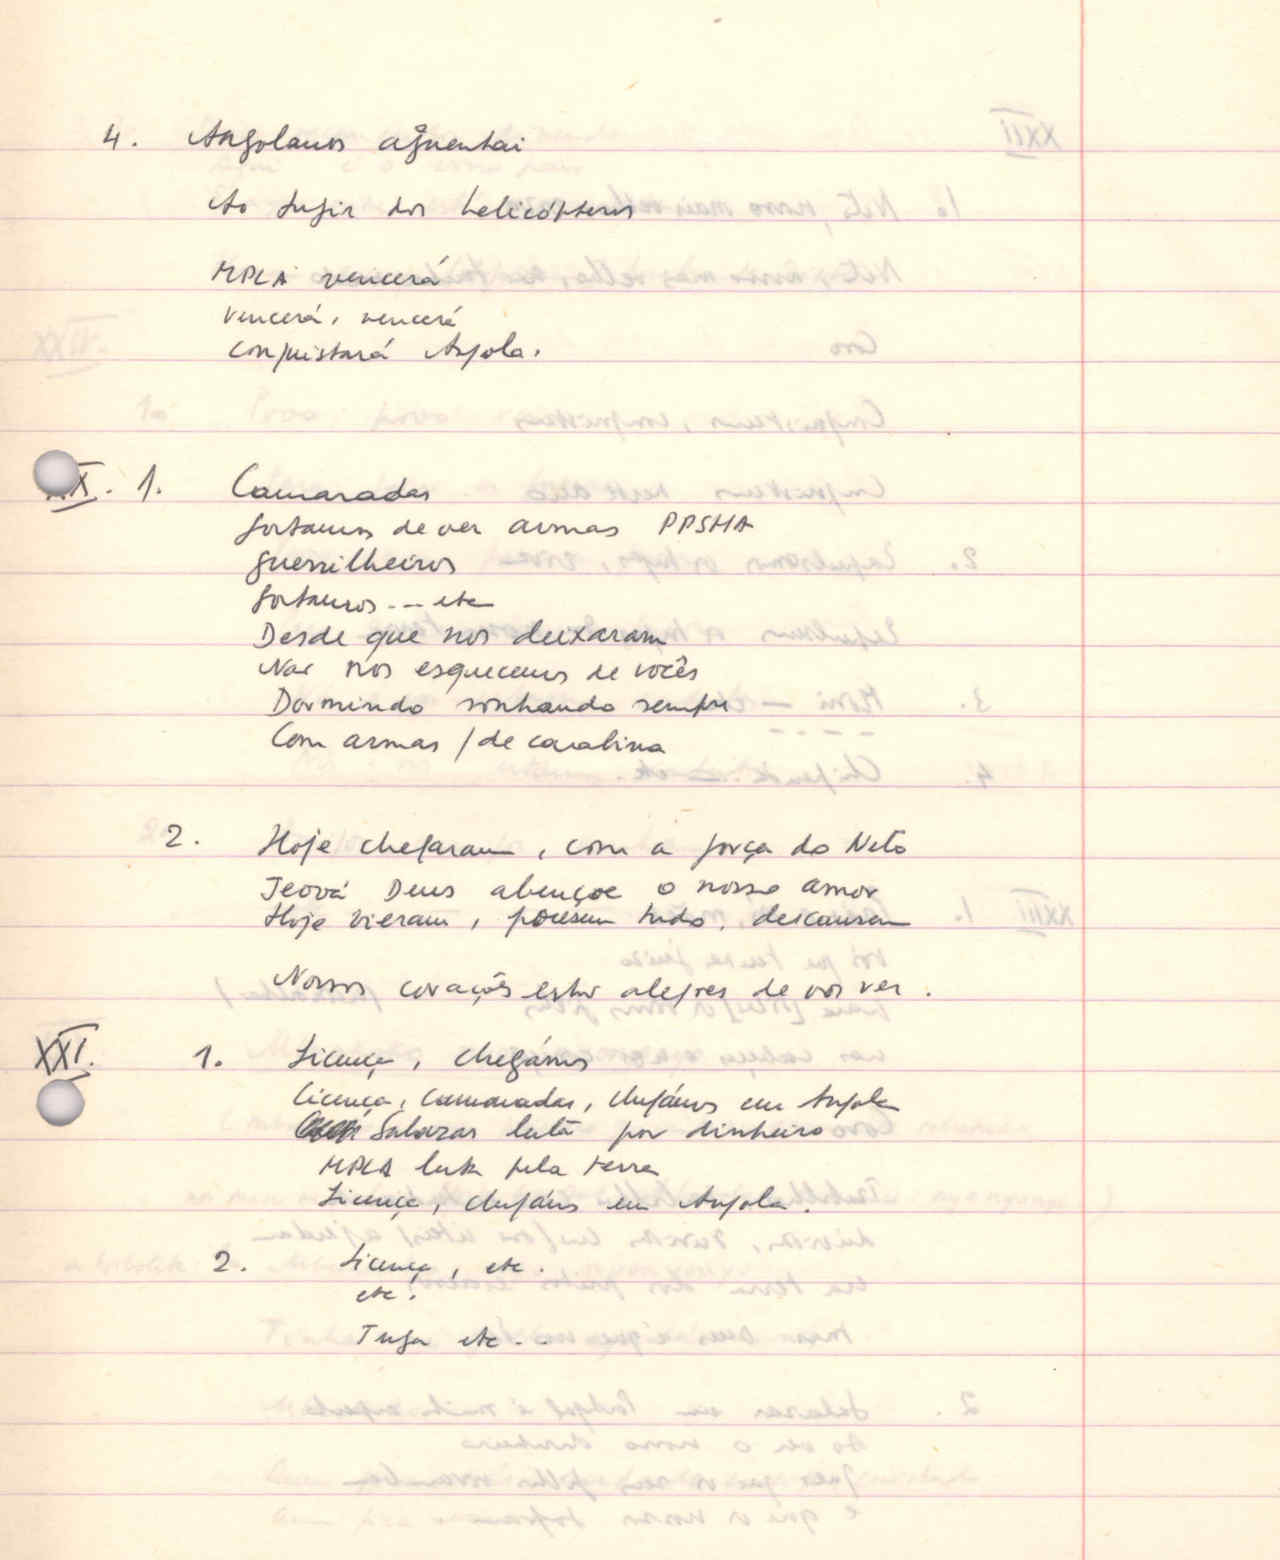 4. Angolanos aguentai
Ao fugir dos helicópteros
MPLA vencerá
vencerá, vencerá
conquistará Angola.
XX. 1. Camaradas
gostamos de ver armas PPSHA
guerrilheiros
gostamos --- etc
Desde que nos deixaram
Não nos esquecemos de vocês
Dormindo sonhando sempre
Com armas / de carabina
2. Hoje chegaram, com a força do Neto
Jeová Deus abençoe o nosso amor
Hoje vieram, pousem tudo, descansem
Nossos corações estão alegres de vos ver.
XXI. 1. Licença, chegámos
Licença, camaradas, chegámos em Angola
Salazar luta por dinheiro
MPLA luta pela terra
Licença, chegámos em Angola.
2. Licença, etc.
etc.
Tuga etc. -